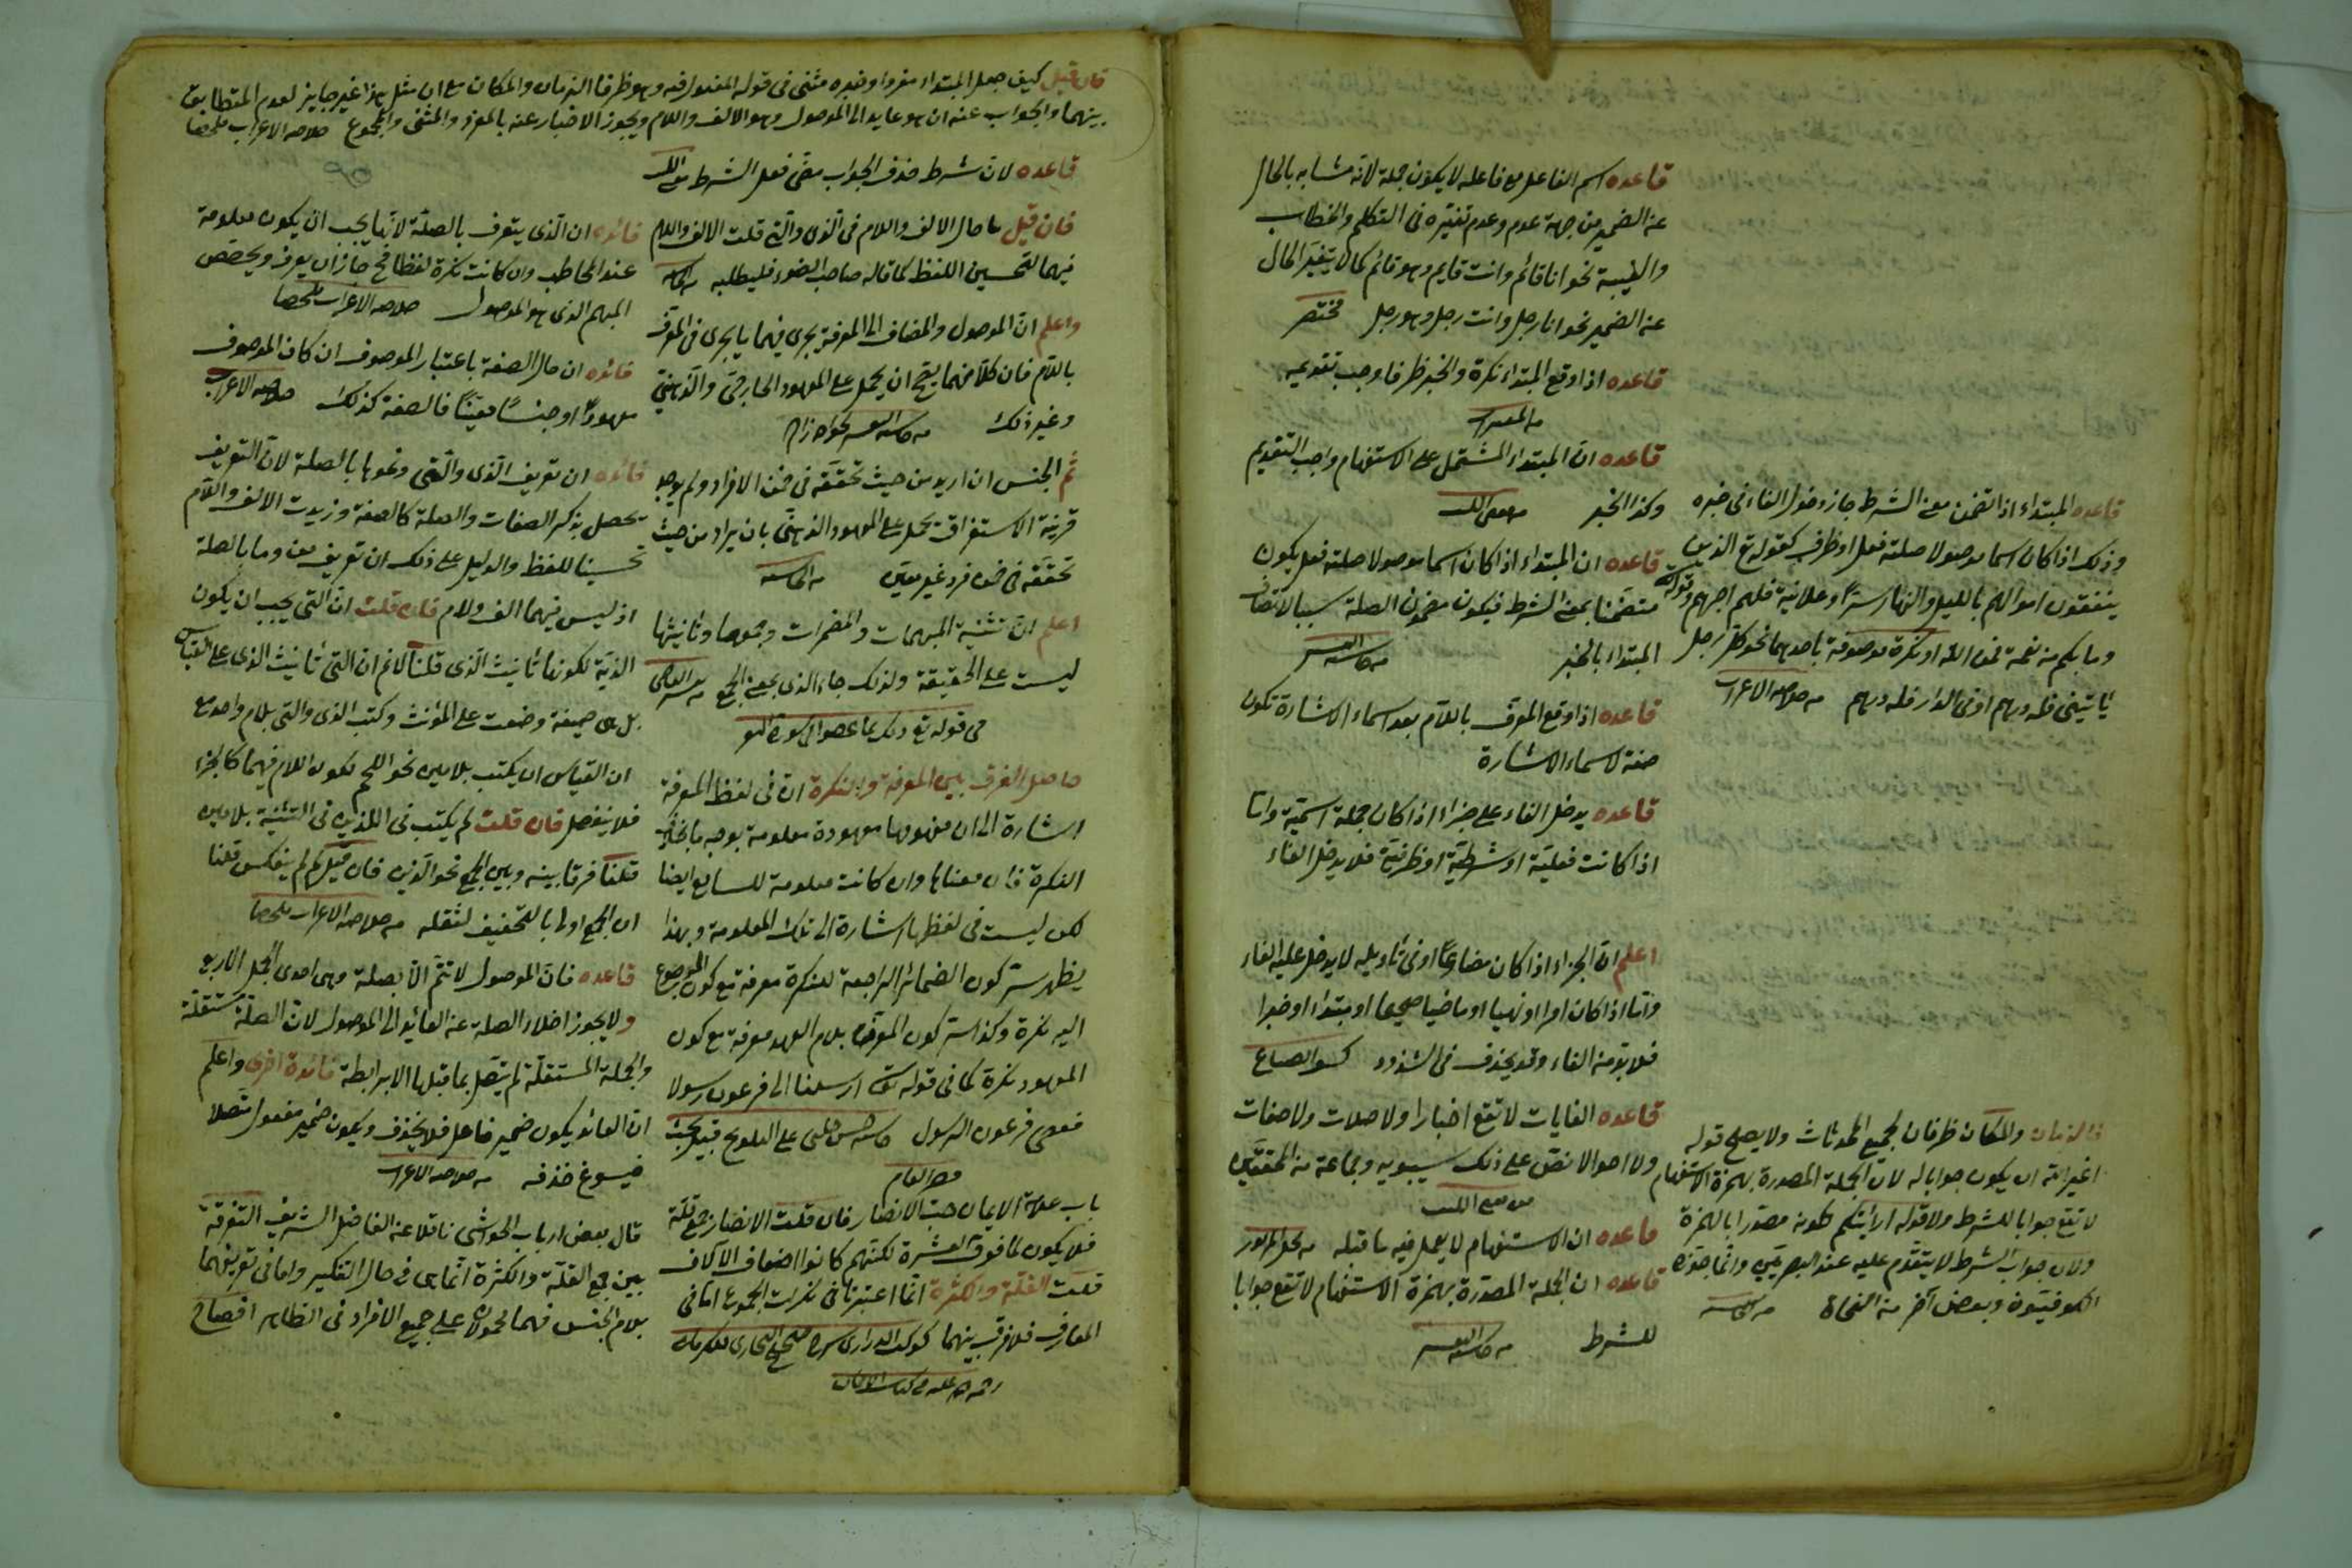 قاعده اسم الفاعل مع فاعله لا يكون جملة لانه مشابه بالخال
عن الضمير من جهة عدم وعدم تغيّره فى التكلم والخطاب
والغيبة نحو انا قائم وانت قايم وهو قائم كما لا يتغيّر الخال
عن الضمير نحو انا رجل وانت رجل وهو رجل مختصر
قاعده اذا وقع المبتداء نكرة والخبر ظرفا وجب تقديمه
قاعده ان المبتداء المشتمل على الاستفهام واجب التقديم
وكذا الخبر
قاعده ان المبتداء اذا كان اسما موصولا صلته فعل يكون
متضمّنا بمعنى الشرط فيكون مضمون الصلة سببا لاتصاف
المبتداء بالخبر
قاعده اذا وقع المعرّف باللام بعد اسماء الاشارة تكون
صفة لاسماء الاشارة
قاعده يدخل الفاء على جزاء اذا كان جملة اسميّة واما
اذا كانت فعليّة او شرطيّة او ظرفيّة فلا يدخل الفاء
اعلم ان الجزاء اذا كان مضارعًا او فى تأويله لا يدخل عليه الفاء
وامّا اذا كان امرا او نهيا او ماضيا صحيحا او مبتداء او خبرا
فلا بدّ من الفاء وقد يحذف فى الشذوذ
قاعده الغايات لا تقع اخبارا ولا صلات ولا صفات
ولا احوالا نصّ على ذلك سيبويه وجماعة من المحققين
قاعده ان الاستفهام لا يعمل فيه ما قبله
قاعده ان الجملة المصدّرة بهمزة الاستفهام لا تقع جوابا
للشرط
قاعده المبتداء اذا تضمّن معنى الشرط جاز دخول الفاء فى خبره
وذلك اذا كان اسما موصولا صلته فعل او ظرف كقوله تع الذين
ينفقون اموالهم بالليل والنهار سرًّا وعلانية فلهم اجرهم وقوله
وما بكم من نعمة فمن الله او نكرة موصوفة باحدهما نحو كل رجل
يأتينى فله درهم او فى الدار فله درهم من خلاصه الاعراب
فالزمان والمكان ظرفان لجميع المحدثات ولا يصلح قوله
اغير الله ان يكون جوابا له لان الجملة المصدرة بهمزة الاستفهام
لا تقع جوابا للشرط ولا قوله ارأيتكم لكونه مصدّرا بالهمزة
ولان جواب الشرط لا يتقدّم عليه عند البصريّين وانّما جوّزه
الكوفيّون وبعض آخر من النحاة
فان قيل كيف جعل المبتداء مفردا وخبره مثنى فى قوله المفعول فيه وهو ظرفا الزمان والمكان مع ان مثل هذا غير جايز لعدم المطابق
بينهما والجواب عنه ان هو عايد الى الموصول وهو الالف واللام ويجوز الاخبار عنه بالمفرد والمثنى والمجموع خلاصه الاعراب ملخصا
قاعده لان شرط حذف الجواب مضى فعل الشرط
فان قيل ما حال الالف واللام فى الّذى والّتى قلت الالف واللام
فيهما لتحسين اللفظ كما قاله صاحب الضوء فليطلبه
واعلم انّ الموصول والمضاف الى المعرفة يجرى فيهما ما يجرى فى المعرّف
باللام فان كلّا منهما يصحّ ان يحمل على المعهود الخارجىّ والذّهنىّ
وغير ذلك
ثمّ الجنس ان اريد من حيث تحقّقه فى ضمن الافراد ولم يوجد
قرينة الاستغراق يحمل على المعهود الذهنىّ بان يراد من حيث
تحقّقه فى ضمن فرد غير معيّن
اعلم انّ تثنية المبهمات والمضمرات وجموعها وتأنيثها
ليست على الحقيقة ولذلك جاء الذى بمعنى الجمع
حاصل الفرق بين المعرفة والنكرة انّ فى لفظ المعرفة
اشارة الى ان مفهومها معهودة معلومة بوجه ما بخلاف
النكرة فان معناها وان كانت معلومة للسامع ايضا
لكن ليست فى لفظها اشارة الى تلك المعلومة وبهذا
يظهر ستر كون الضمائر الراجعة للنكرة معرفة مع كون المرجوع
اليه نكرة وكذا ستر كون المعرّف بلام العهد معرفة مع كون
المعهود نكرة كما فى قوله تع ارسلنا الى فرعون رسولا
فعصى فرعون الرسول
باب علامة الايمان حبّ الانصار فان قلت الانصار جمع قلّة
فلا يكون لما فوق العشرة لكنّهم كانوا اضعاف الآلاف
قلت القلّة والكثرة انّما اعتبرتا فى نكرات الجموع امّا فى
المعارف فلا فرق بينهما
فائده ان الّذى يتعرف بالصلة لانّها يجب ان يكون معلومة
عند المخاطب وان كانت نكرة لفظا فح جاز ان يعرف ويخصّص
المبهم الذى هو الموصول خلاصه الاعراب ملخصا
فائده ان حال الصفة باعتبار الموصوف ان كان الموصوف
معهودًا او جنسًا معيّنًا فالصفة كذلك خلاصه الاعراب
فائده ان تعريف الّذى والّتى ونحوها بالصلة لان التعريف
يحصل بذكر الصفات والصلة كالصفة وزيدت الالف واللام
تحسينا للفظ والدليل على ذلك ان تعريف من وما بالصلة
اذ ليس فيهما الف ولام فان قلت انّ التى يجب ان يكون
الذية لكونها تأنيث الّذى قلنا لا نم ان التى تأنيث الذى على القياس
بل هى صيغة وضعت على المؤنث وكتب الذى والتى بلام واحد مع
ان القياس ان يكتب بلامين نحو اللحم لكون اللام فيهما كالجزء
فلا ينفصل فان قلت لم يكتب فى اللذين فى التثنية بلامين
قلنا فرقا بينه وبين الجمع نحو الّذين فان قيل لم لم ينعكس قلنا
ان الجمع اولى بالتخفيف لثقله من خلاصه الاعراب ملخصا
قاعده فان الموصول لا تتمّ الّا بصلة وهى احدى الجمل الاربع
ولا يجوز اخلاء الصلة عن العائد الى الموصول لان الصلة مستقلّة
والجملة المستقلّة لم يتّصل بما قبلها الا برابطة فائدة اخرى واعلم
انّ العائد يكون ضمير فاعل فلا يحذف ويكون ضمير مفعول متّصلا
فيسوغ حذفه من خلاصه الاعراب
قال بعض ارباب الحواشى ناقلا عن الفاضل الشريف التفرقة
بين جمع القلّة والكثرة انّما هى فى حال التنكير واما فى تعريفهما
بلام الجنس فهما محمولان على جميع الافراد فى الظاهر افصاح